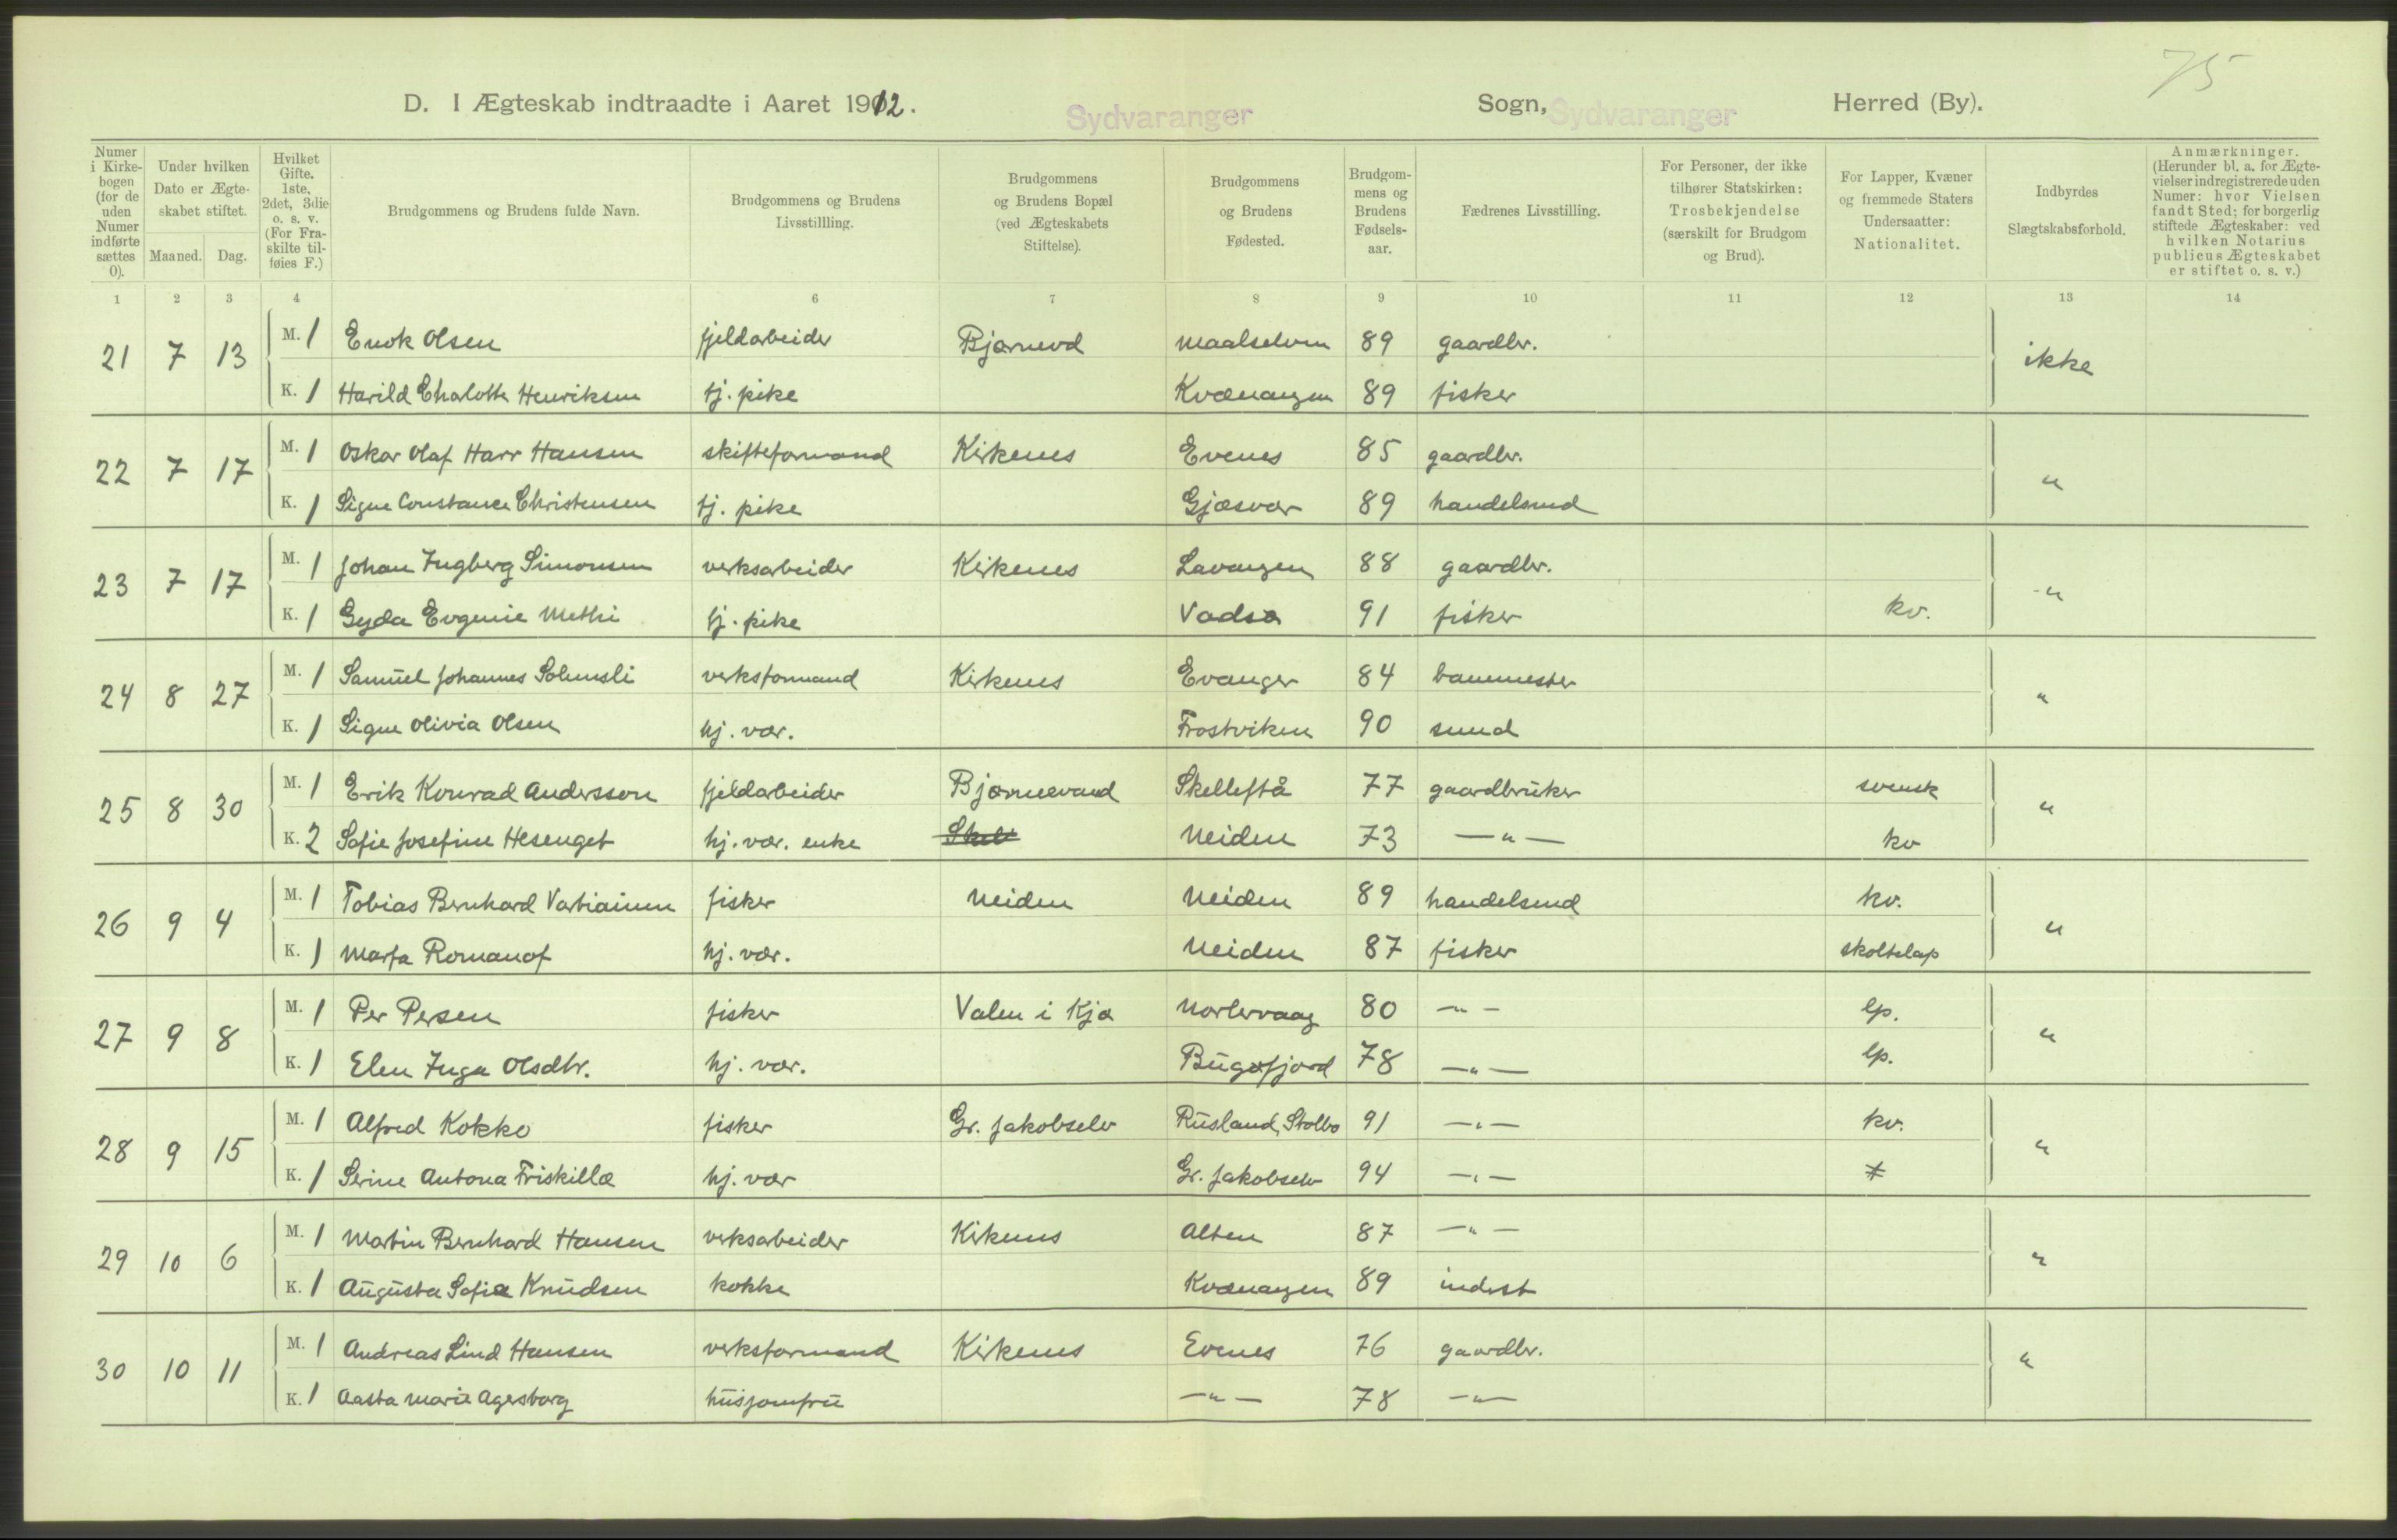 75
D. I Ægteskab indtraadte i Aaret 1912. Sydvaranger Sogn, Sydvaranger Herred (By).
Numer i Kirkebogen (for de uden Numer indførte sættes 0).
Under hvilken Dato er Ægteskabet stiftet.
Maaned. Dag.
Hvilket Gifte. 1ste, 2det, 3die o. s. v. (For Fraskilte tilføies F.)
Brudgommens og Brudens fulde Navn.
Brudgommens og Brudens Livsstillling.
Brudgommens og Brudens Bopæl (ved Ægteskabets Stiftelse).
Brudgommens og Brudens Fødested.
Brudgommens og Brudens Fødselsaar.
Fædrenes Livsstilling.
For Personer, der ikke tilhører Statskirken: Trosbekjendelse (særskilt for Brudgom og Brud).
For Lapper, Kvæner og fremmede Staters Undersaatter: Nationalitet.
Indbyrdes Slægtskabsforhold.
Anmærkninger. (Herunder bl. a. for Ægtevielser indregistrerede uden Numer: hvor Vielsen fandt Sted; for borgerlig stiftede Ægteskaber: ved hvilken Notarius publicus Ægteskabet er stiftet o. s. v.)
1 2 3 4 6 7 8 9 10 11 12 13 14
21 7 13 M. 1 Enok Olsen fjeldarbeider Bjørnevd Maalselven 89 gaardbr. ikke
K. 1 Harild Charlotte Henriksen tj. pike Kvænangen 89 fisker
22 7 17 M. 1 Oskar Olaf Harr Hansen skifteformand Kirkenes Evenes 85 gaardbr. "
K. 1 Signe Constance Christensen tj. pike Gjæsvær 89 handelsmd
23 7 17 M. 1 Johan Ingberg Simonsen verksarbeider Kirkenes Lavangen 88 gaardbr. "
K. 1 Gyda Evgenie Methi tj. pike Vadsø 91 fisker kv.
24 8 27 M. 1 Samuel Johannes Solemsli verksformand Kirkenes Evanger 84 banemester "
K. 1 Signe Olivia Olsen hj. vær. Frostviken 90 smed
25 8 30 M. 1 Erik Konrad Andersson fjeldarbeider Bjørnevand Skelleftå 77 gaardbruker svensk "
K. 2 Sofie Josefine Hesenget hj. vær. enke Neiden 73 — " — kv
26 9 4 M. 1 Tobias Bernhard Vartiainen fisker Neiden Neiden 89 handelsmd kv. "
K. 1 Marfa Romanof hj. vær. Neiden 87 fisker skoltelap
27 9 8 M. 1 Per Persen fisker Valen i Kjø Nordervaag 80 — " — lp. "
K. 1 Elen Inga Olsdtr. hj. vær. Bugøfjord 78 — " — lp.
28 9 15 M. 1 Alfred Kokko fisker Gr. Jakobselv Rusland, Stolbo 91 — " — kv. "
K. 1 Serine Antona Friskillæ hj. vær Gr. Jakobselv 94 — " —
29 10 6 M. 1 Martin Bernhard Hansen verksarbeider Kirkenes Alten 87 — " — "
K. 1 Augusta Sofie Knudsen kokke Kvænangen 89 inderst
30 10 11 M. 1 Andreas Lind Hansen verksformand Kirkenes Evenes 76 gaardbr. "
K. 1 Aasta Marie Agersborg husjomfru — " — 78 — " —